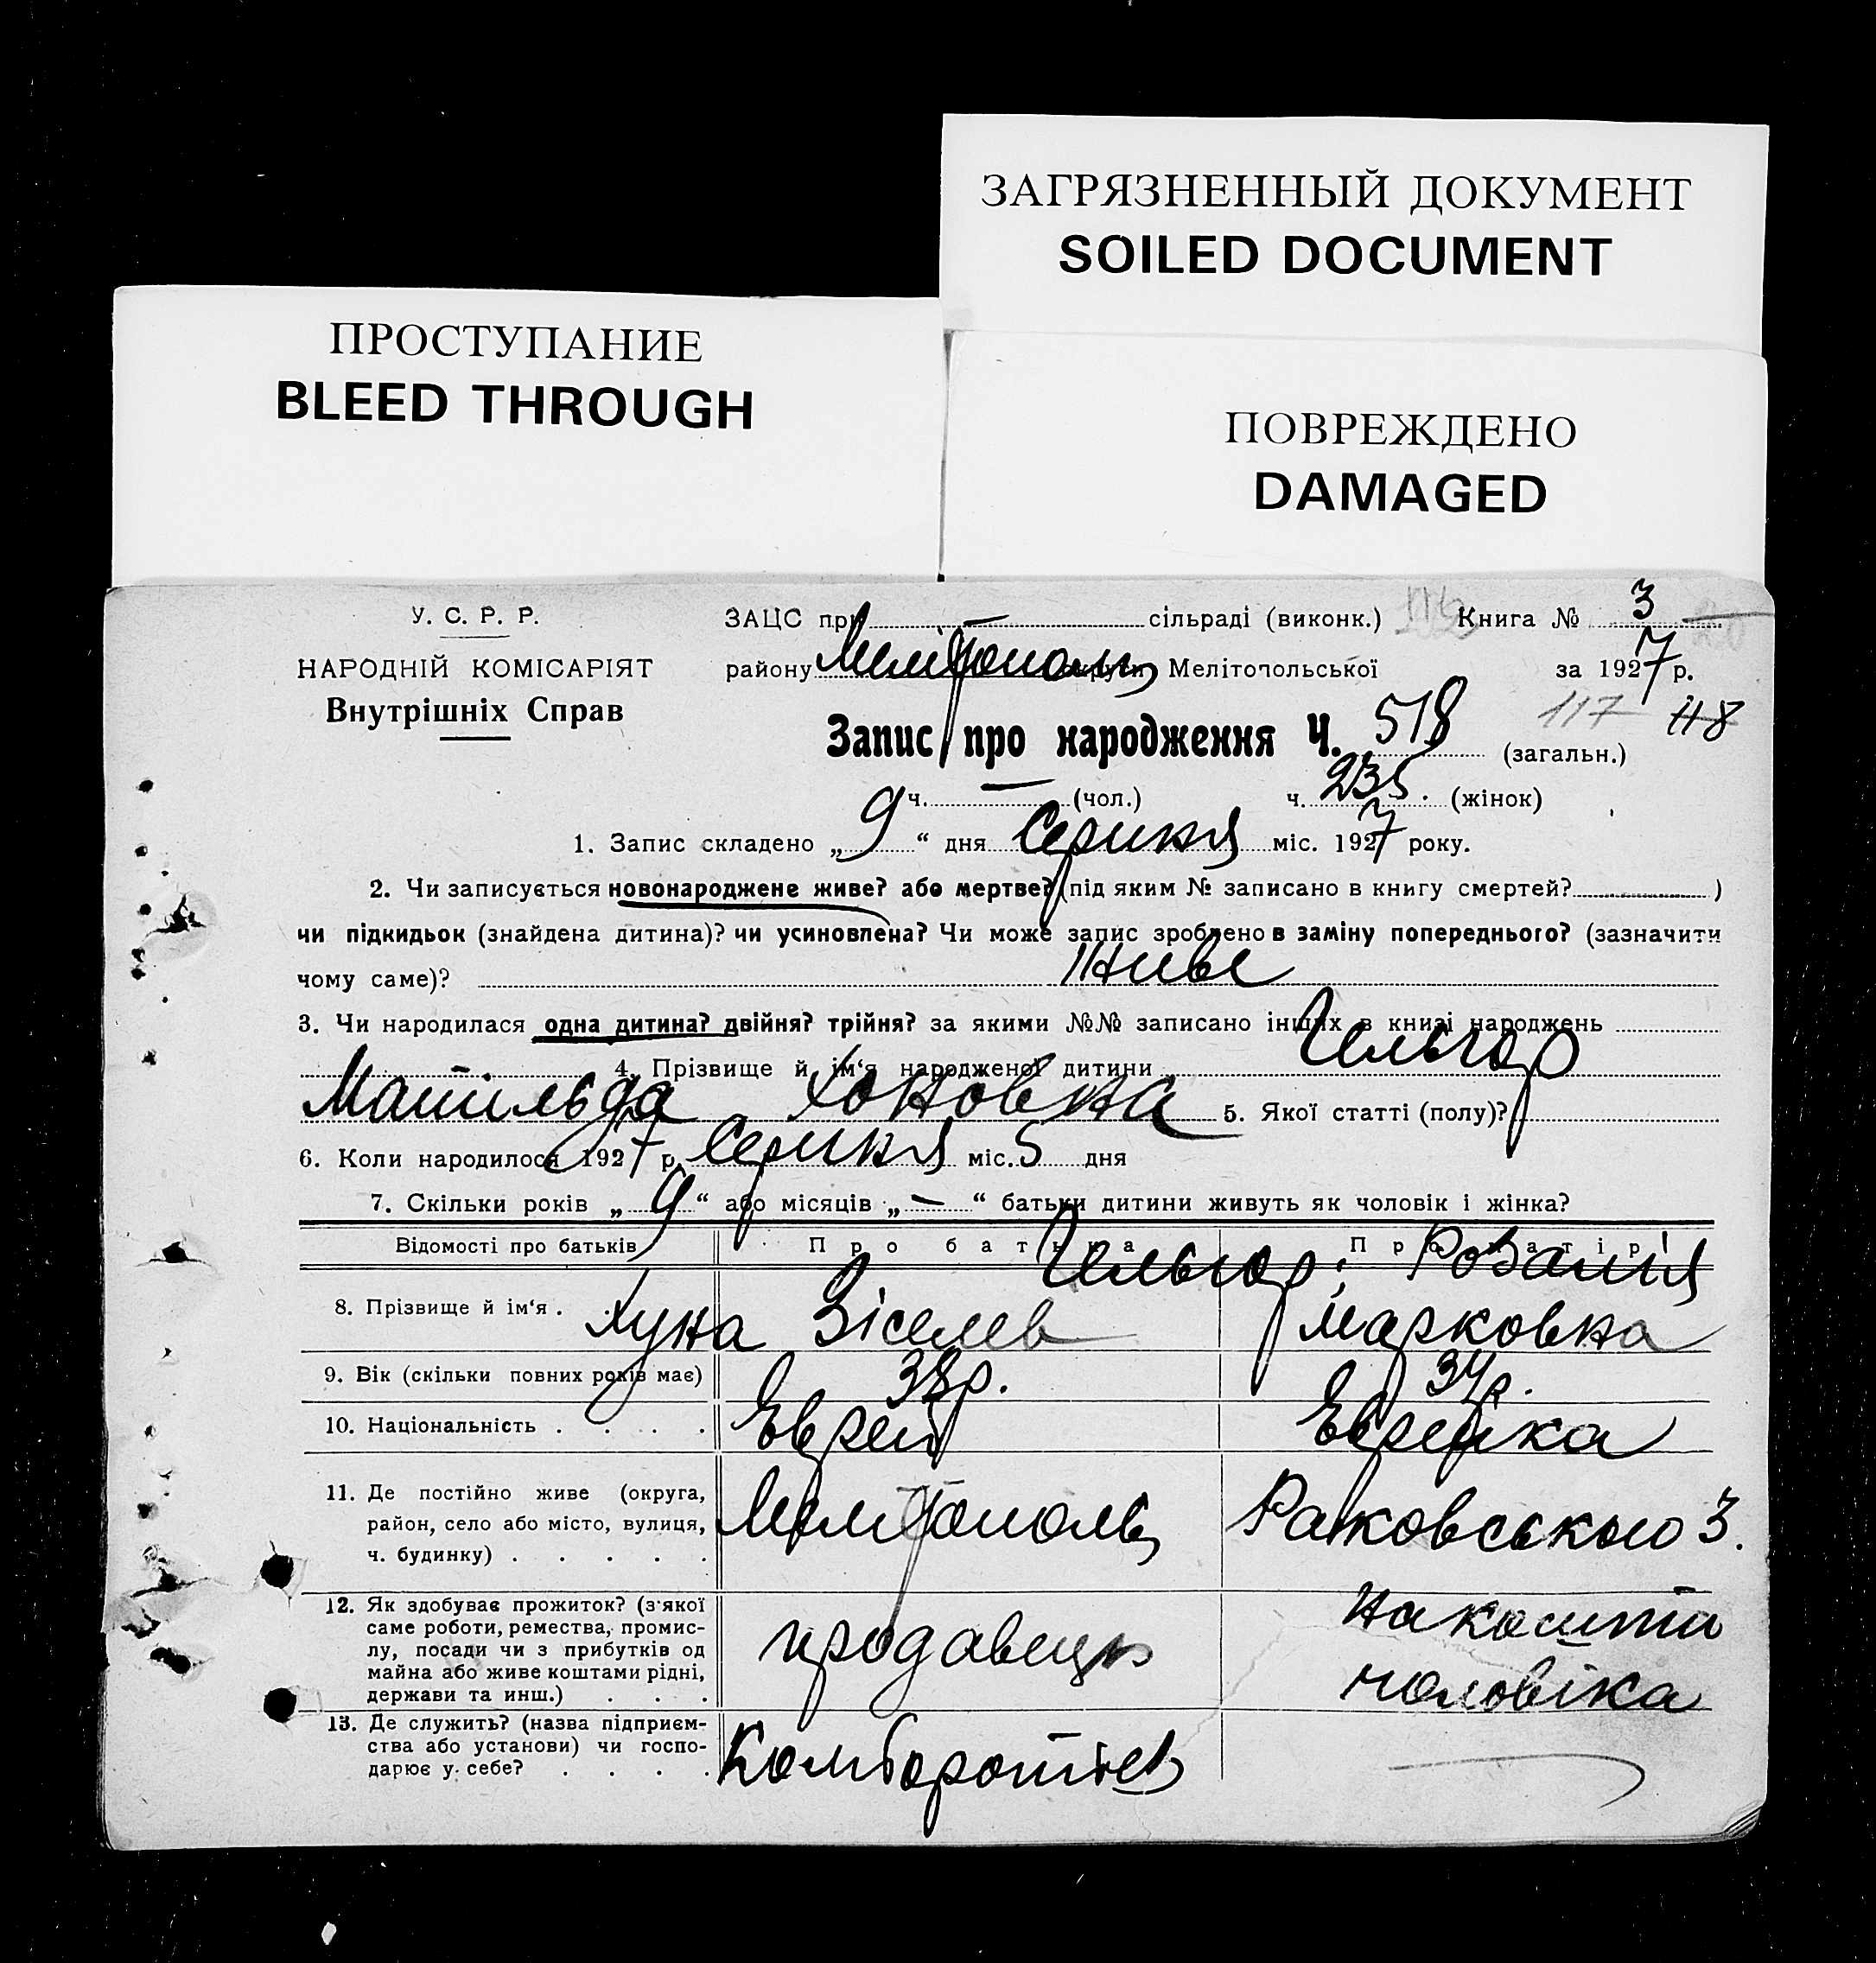 ЗАГРЯЗНЕННЫЙ ДОКУМЕНТ
SOILED DOCUMENT
ПРОСТУПАНИЕ
BLEED THROUGH
ПОВРЕЖДЕНО
DAMAGED
У. С. Р. Р.
НАРОДНІЙ КОМІСАРІЯТ
Внутрішніх Справ
ЗАЦС при — сільраді (виконк.) Книга № 3
району Мелітополь округи Мелітопольської за 1927 р.
117 118
Запис про народження Ч. 518 (загальн.)
ч. — (чол.) ч. 235. (жінок)
1. Запис складено „ 9 “ дня Серпня міс. 1927 року.
2. Чи записується новонароджене живе? або мертве? (під яким № записано в книгу смертей? )
чи підкидьок (знайдена дитина)? чи усиновлена? Чи може запис зроблено в заміну попереднього? (зазначити
чому саме)? живе
3. Чи народилася одна дитина? двійня? трійня? за якими №№ записано інших в книзі народжень
4. Прізвище й ім‘я народженої дитини
Матильда Хоновна 5. Якої статті (полу)?
6. Коли народилося 1927 р. Серпня міс. 5 дня
7. Скільки років „ 9 “ або місяців „ — “ батьки дитини живуть як чоловік і жінка?
Відомості про батьків Про батька Про матір
8. Прізвище й ім‘я . Хуна Зіселев Розалия Марковна
9. Вік (скільки повних років має) 38р. 34р.
10. Національність . . . . Еврей Еврейка
11. Де постійно живе (округа,
район, село або місто, вулиця,
ч. будинку) . . . . . Мелітополь Раковського 3.
12. Як здобуває прожиток? (з‘якої
саме роботи, ремества, промис-
лу, посади чи з прибутків од
майна або живе коштами рідні,
держави та инш.) . . . продавець на кошти
чоловіка
13. Де служить? (назва підприєм-
ства або установи) чи госпо-
дарює у себе? . . . .